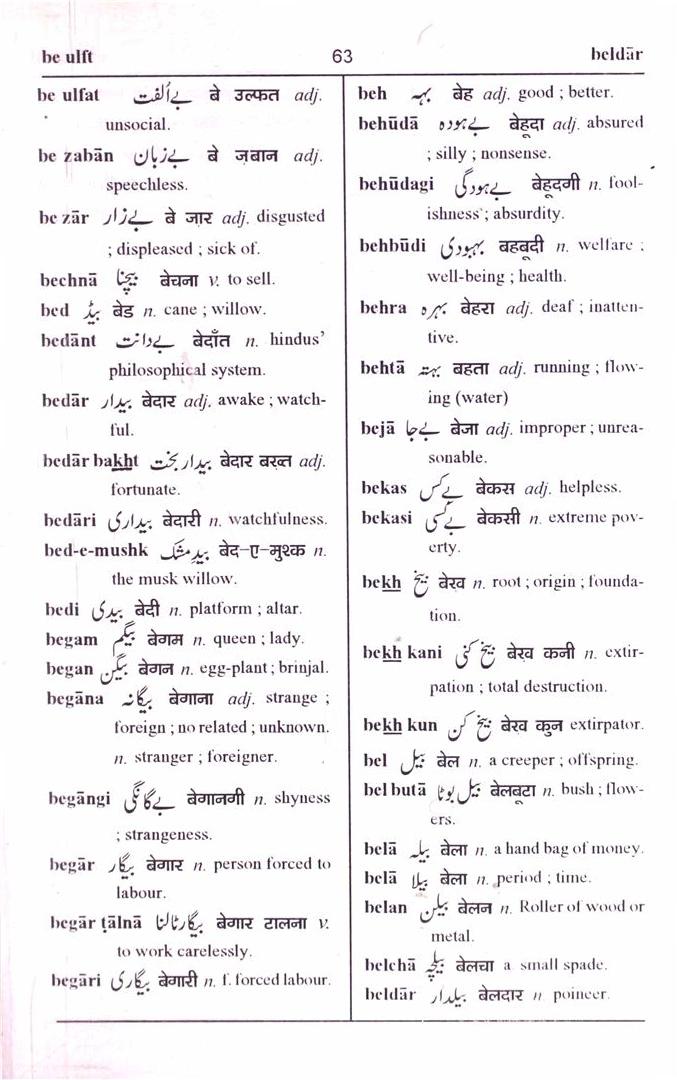 be ulft
63
beldār
be ulfat بے اُلفت बे उल्फत adj.
unsocial.
be zabān بے زبان बे ज़बान adj.
speechless.
be zār بے زار बे जार adj. disgusted
; displeased ; sick of.
bechnā بیچنا बेचना v. to sell.
bed بیڈ बेड n. cane ; willow.
bedānt بے دانت बेदाँत n. hindus’
philosophical system.
bedār بیدار बेदार adj. awake ; watch-
ful.
bedār bakht بیدار بخت बेदार बख्त adj.
fortunate.
bedāri بیداری बेदारी n. watchfulness.
bed-e-mushk بیدِ مشک बेद-ए-मुश्क n.
the musk willow.
bedi بیدی बेदी n. platform ; altar.
begam بیگم बेगम n. queen ; lady.
began بیگن बेगन n. egg-plant ; brinjal.
begāna بیگانہ बेगाना adj. strange ;
foreign ; no related ; unknown.
n. stranger ; foreigner.
begāngi بے گانگی बेगानगी n. shyness
; strangeness.
begār بیگار बेगार n. person forced to
labour.
begār ṭālnā بیگار ٹالنا बेगार टालना v.
to work carelessly.
begāri بیگاری बेगारी n. f. forced labour.
beh بہہ बेह adj. good ; better.
behūdā بے ہودہ बेहूदा adj. absured
; silly ; nonsense.
behūdagi بے ہودگی बेहूदगी n. fool-
ishness ; absurdity.
behbūdi بہبودی बहबूदी n. welfare ;
well-being ; health.
behra بہرہ बेहरा adj. deaf ; inatten-
tive.
behtā بہتہ बहता adj. running ; flow-
ing (water)
bejā بے جا बेजा adj. improper ; unrea-
sonable.
bekas بے کس बेकस adj. helpless.
bekasi بے کسی बेकसी n. extreme pov-
erty.
bekh بیخ बेख n. root ; origin ; founda-
tion.
bekh kani بیخ کنی बेख कनी n. extir-
pation ; total destruction.
bekh kun بیخ کن बेख कुन extirpator.
bel بیل बेल n. a creeper ; offspring.
bel butā بیل بوٹا बेलबूटा n. bush ; flow-
ers.
belā بیلہ बेला n. a hand bag of money.
belā بیلا बेला n. period ; time.
belan بیلن बेलन n. Roller of wood or
metal.
belchā بیلچہ बेलचा a small spade.
beldār بیلدار बेलदार n poineer.